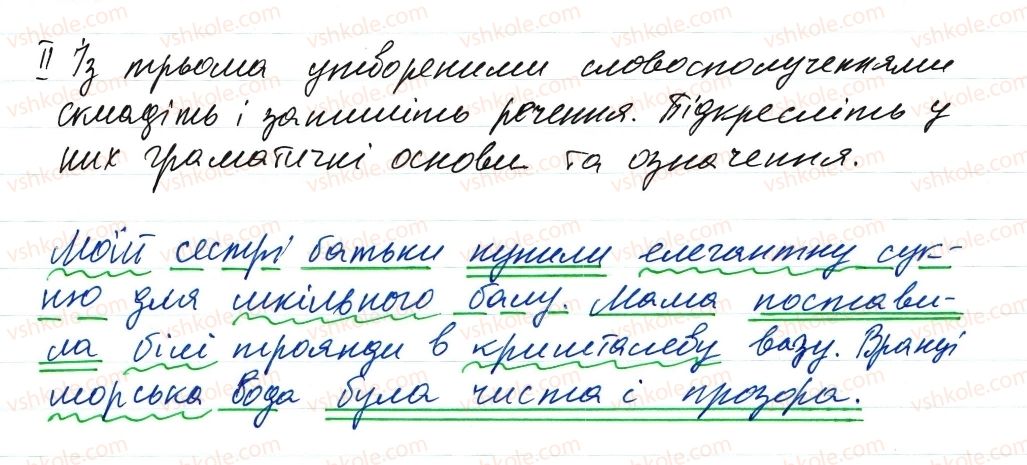 II Із трьома утвореними словосполученнями
складіть і запишіть речення. Підкресліть у
них граматичні основи та означення.
Моїй сестрі батьки купили елегантну сук-
ню для шкільного балу. Мама постави-
ла білі троянди в кришталеву вазу. Вранці
морська вода була чиста і прозора.